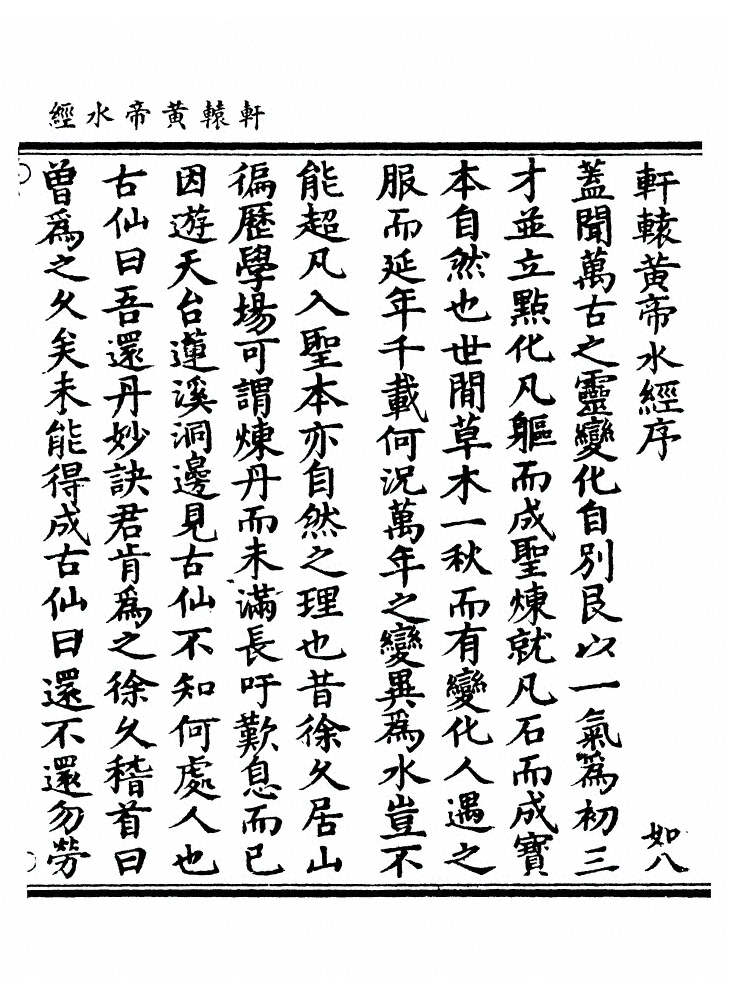 軒轅黃帝水經
軒轅黃帝水經序
如八
蓋聞萬古之靈變化自別艮以一氣爲初三
才並立點化凡軀而成聖煉就凡石而成寶
本自然也世間草木一秋而有變化人遇之
服而延年千載何況萬年之變異爲水豈不
能超凡入聖本亦自然之理也昔徐久居山
徧歷學場可謂煉丹而未滿長吁歎息而已
因遊天台蓮溪洞邊見古仙不知何處人也
古仙曰吾還丹妙訣君肯爲之徐久稽首曰
曾爲之久矣未能得成古仙曰還不還勿勞